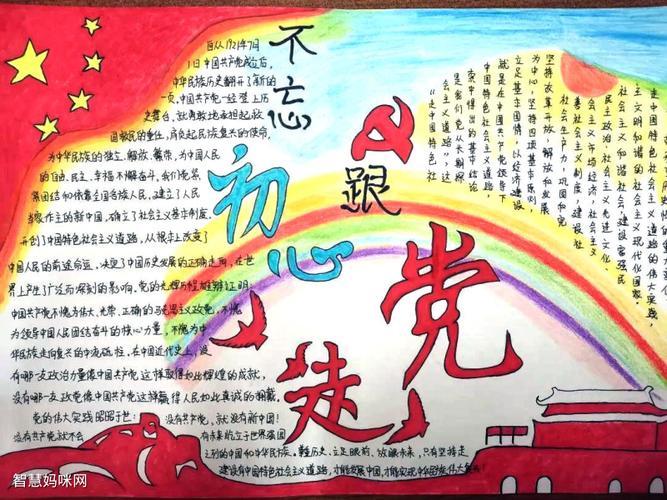 不忘
初心
跟
党
走
自从1921年7月
1日中国共产党成立后,
中华民族历史翻开了新的
一页,中国共产党一经登上历
史舞台,就勇敢地肩担起救
国救民的重任,肩负起民族复兴的使命,
为中华民族的独立、解放、繁荣,为中国人民
的自由、民主、幸福不懈奋斗,我们党紧
紧团结和依靠全国各族人民,建立了人民
当家作主的新中国,确立了社会主义基本制度,
开创了中国特色社会主义道路,从根本上改变了
中国人民的前途命运,决定了中国历史发展的正确走向,在世
界上产生了广泛而深刻的影响,党的光辉历程雄辩证明:
中国共产党不愧为伟大、光荣、正确的马克思主义政党,不愧
为领导中国人民团结奋斗的核心力量,不愧为中
华民族走向复兴的中流砥柱,在中国近代史上,没
有哪一支政治力量像中国共产党这样取得如此辉煌的成就,
没有哪一支政党像中国共产党这样赢得人民如此真诚的拥戴,
党的伟大实践昭昭于世:没有共产党,就没有新中国!
没有共产党就不会
有未来屹立于世界强国
之列的中国和中华民族。鞭历史,立足眼前,放眼未来,只有坚持走
建设有中国特色社会主义道路,才能发展中国,才能实现中华民族伟大复兴!
走中国特色社会
的伟大实践,
主义现代化国家。
主文明和谐的社会
社会主义和谐社会,建设富强民
民主政治,社会主义先进文化,
会主义市场经济,社会主义
善社会主义制度,建设社
社会生产力,巩固和完
坚持改革开放,解放和发展
为中心,坚持四项基本原则
立足基本国情,以经济建设
就是在中国共产党领导下
中国特色社会主义道路,
索中得出的基本结论
是我们党从长期探
“走中国特色社
会主义道路”,这
智慧妈咪网